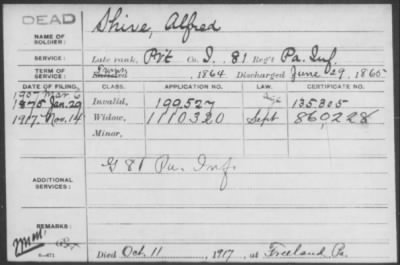 DEAD
NAME OF SOLDIER: Shive, Alfred
SERVICE: Late rank, Pvt Co. I, 81 Reg't Pa. Inf.
TERM OF SERVICE: Drawn Enlisted , 1864 Discharged June 29, 1865
DATE OF FILING. CLASS. APPLICATION NO. LAW. CERTIFICATE NO.
1907 Mar 6
1875 Jan. 29 Invalid, 199,527 135,305
1917 Nov. 14 Widow, 1110320 Sept 860228
Minor,
ADDITIONAL SERVICES: G 81 Pa. Inf.
REMARKS:
6-471
Died Oct. 11, 1917, at Freeland Pa.